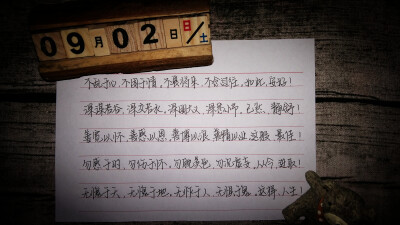 09月02日日/土
不乱于心,不困于情,不畏将来,不念过往,如此,安好!
深谋若谷,深交若水,深明大义,深悉小节,已然,静舒!
善宽以怀,善感以恩,善博以浪,善精以业,这般,最佳!
勿感于时,勿伤于怀,勿耽美色,勿沉虚妄,从今,进取!
无愧于天,无愧于地,无怍于人,无惧于鬼,这样,人生!